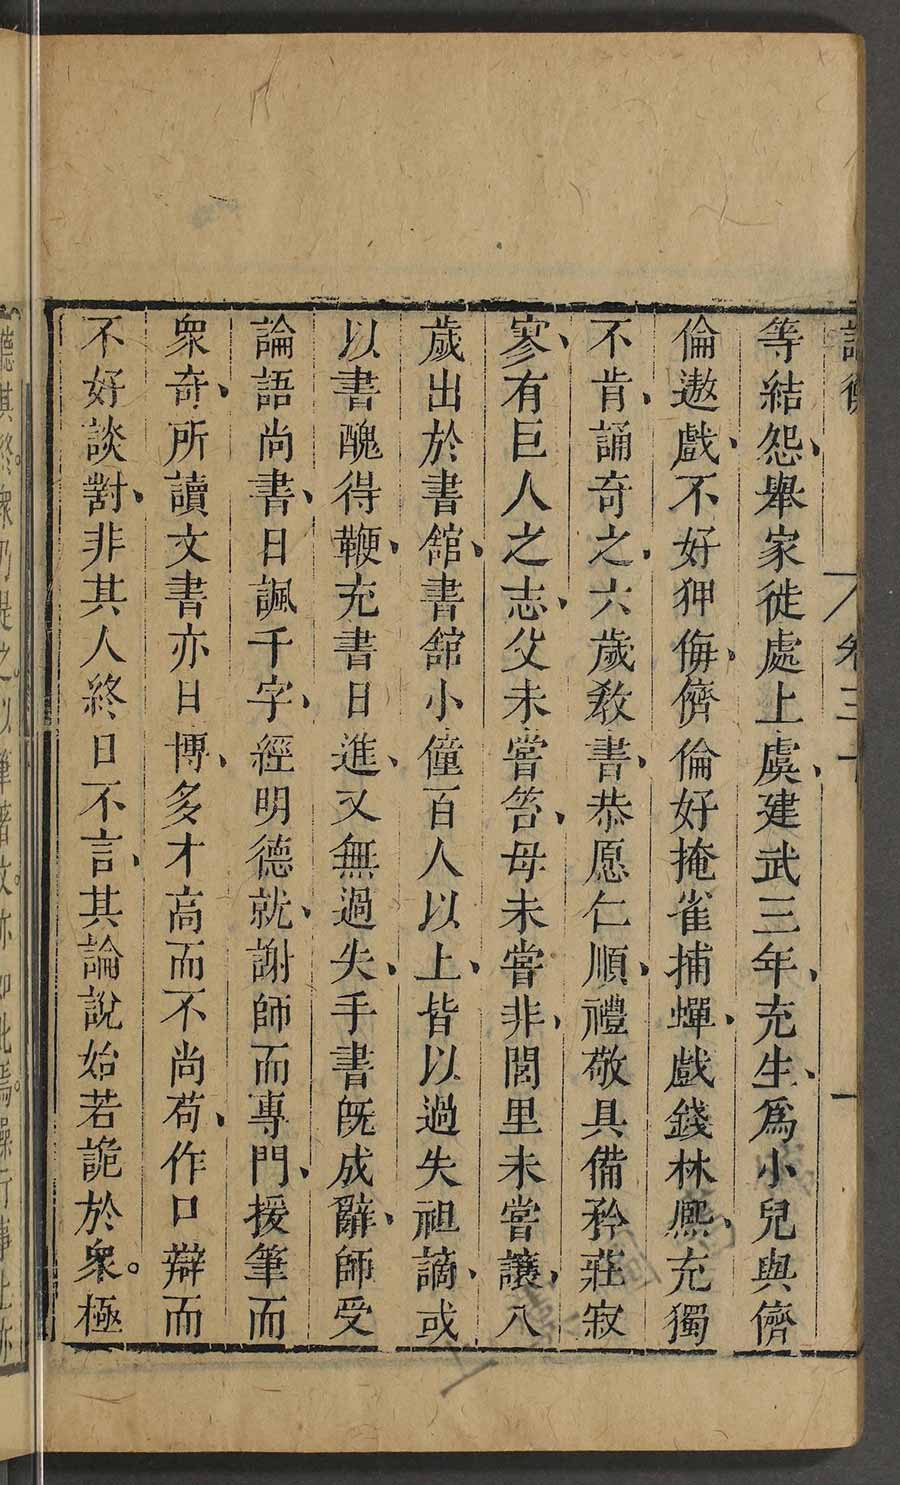 卷三十
一
等結怨、舉家徙處上虞、建武三年、充生、爲小兒與儕
倫遨戲、不好狎侮、儕倫好掩雀捕蟬、戲錢林熈、充獨
不肯、誦奇之、六歲敎書、恭愿仁順、禮敬具備矜莊寂
寥、有巨人之志、父未嘗笞、母未嘗非、閭里未嘗讓、八
歲出於書館、書舘小僮百人以上、皆以過失袒謫、或
以書醜得鞭、充書日進、又無過失、手書旣成辭、師受
論語尚書、日諷千字、經明德就、謝師而專門、援筆而
衆奇、所讀文書亦日博、多才高而不尚苟、作口辯而
不好談對、非其人終日不言、其論說始若詭於衆。極
聽其終。衆乃是之。以筆著文。亦如此焉。操行事上亦